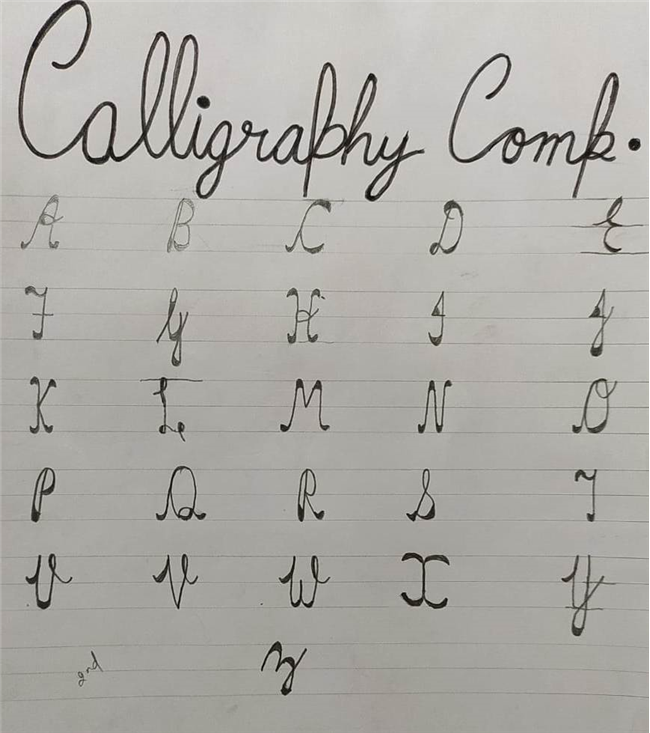 Calligraphy Comp.
A B C D E
F G H I J
K L M N O
P Q R S T
U V W X Y
2nd Z